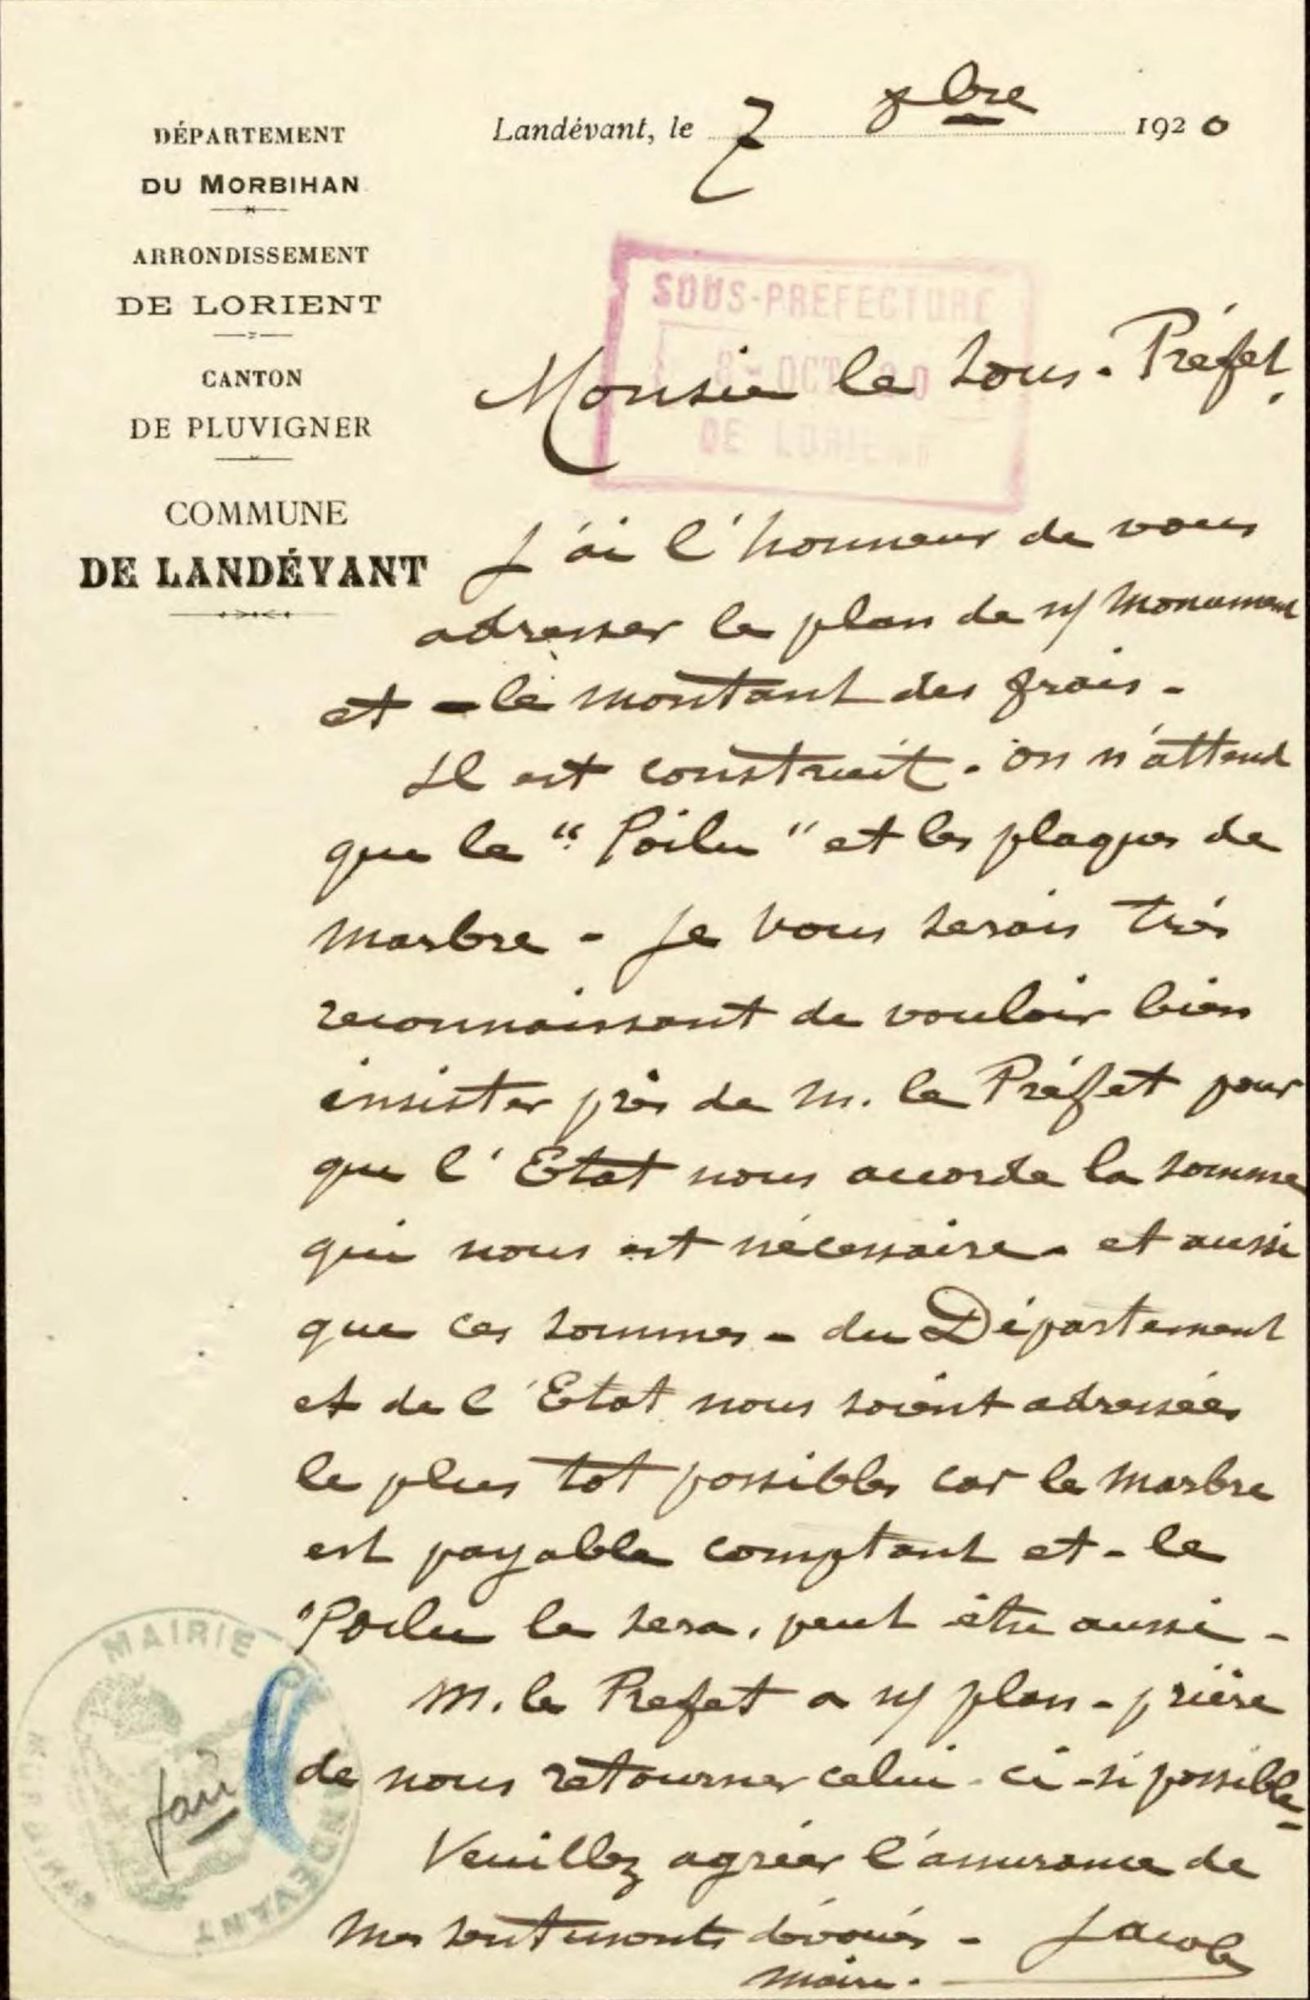 DÉPARTEMENT
DU MORBIHAN
ARRONDISSEMENT
DE LORIENT
CANTON
DE PLUVIGNER
COMMUNE
DE LANDÉVANT
Landévant, le 7 8bre 1920
SOUS-PREFECTURE
8 - OCT 20
DE LORIENT
Monsieur le Sous-Préfet,
J'ai l'honneur de vous
adresser le plan de n/ monument
et - le montant des frais -
Il est construit. On n'attend
que le "Poilu" et les plaques de
marbre - Je vous serais très
reconnaissant de vouloir bien
insister près de M. le Préfet pour
que l'Etat nous accorde la somme
qui nous est nécessaire - et aussi
que ces sommes - du Département
et de l'Etat nous soient adressées
le plus tot possibles car le marbre
est payable comptant et - le
Poilu le sera, peut être aussi -
M. le Prefet a n/ plan - prière
de nous retourner celui-ci - si possible -
Veuillez agréer l'assurance de
mes sentiments dévoués - Jacob
maire.
MAIRIE DE LANDEVANT
MORBIHAN
fait